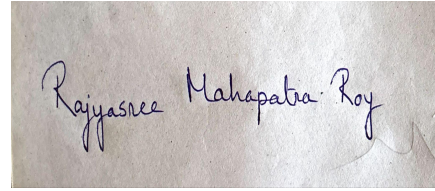 Rajyasree Mahapatra Roy